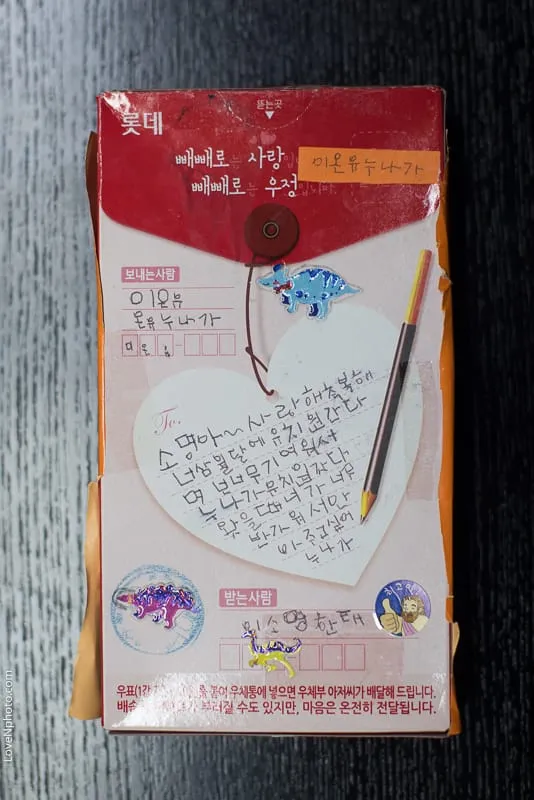 뜯는곳
롯데
빼빼로는 사랑입니다
빼빼로는 우정입니다
미온유누나가
보내는사람
이온유
온유누나가
To.
소명아~사랑해축복해
유치원간다
누나가유치원갔다
왔을때너가너무
반가워서안
아주고싶어
누나가
받는사람
이소명한태
최고예요
우표(1장 붙여 우체통에 넣으면 우체부 아저씨가 배달해 드립니다.
배송 부러질 수도 있지만, 마음은 온전히 전달됩니다.
LoveNphoto.com